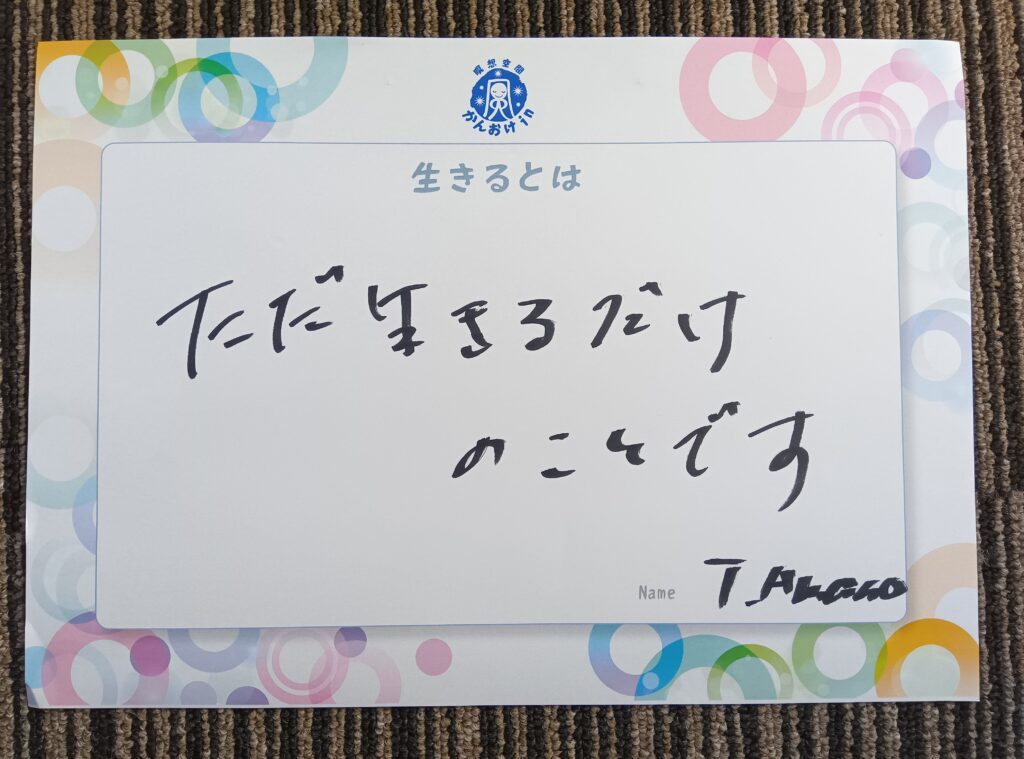 瞑想空間
かんおけin
生きるとは
ただ生きるだけ
のことです
Name